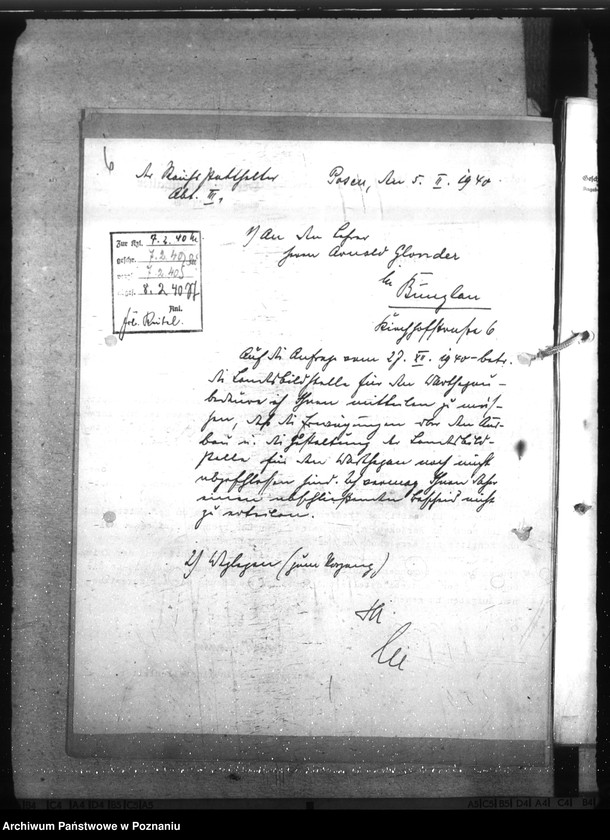 6
Der Reichsstatthalter
Abt. III,
Posen, den 5. II. 1940.
Zur Kzl. 7.2.40
gefchr. 7.2.40
7.2.40
8.2.40
Anl.
1) An den Lehrer
Herrn Arnold Glonder
in
Bunzlau
Kirchhofstraße 6
Auf die Anfrage vom 27. XI. 1940 betr.
die Landesbildstelle für den Warthegau
bedaure ich Ihnen mitteilen zu müs-
sen, daß die Erwägungen über den Auf-
bau u. die Gestaltung der Landesbild-
stelle für den Warthegau noch nicht
abgeschlossen sind. Ich vermag Ihnen daher
einen abschließenden Bescheid nicht
zu erteilen.
2) Weglegen (zum Vorgang)
Archiwum Państwowe w Poznaniu
B4 C4 A4 D4 B5 C5 A5
A5 C5 B5 D4 A4 C4 B4